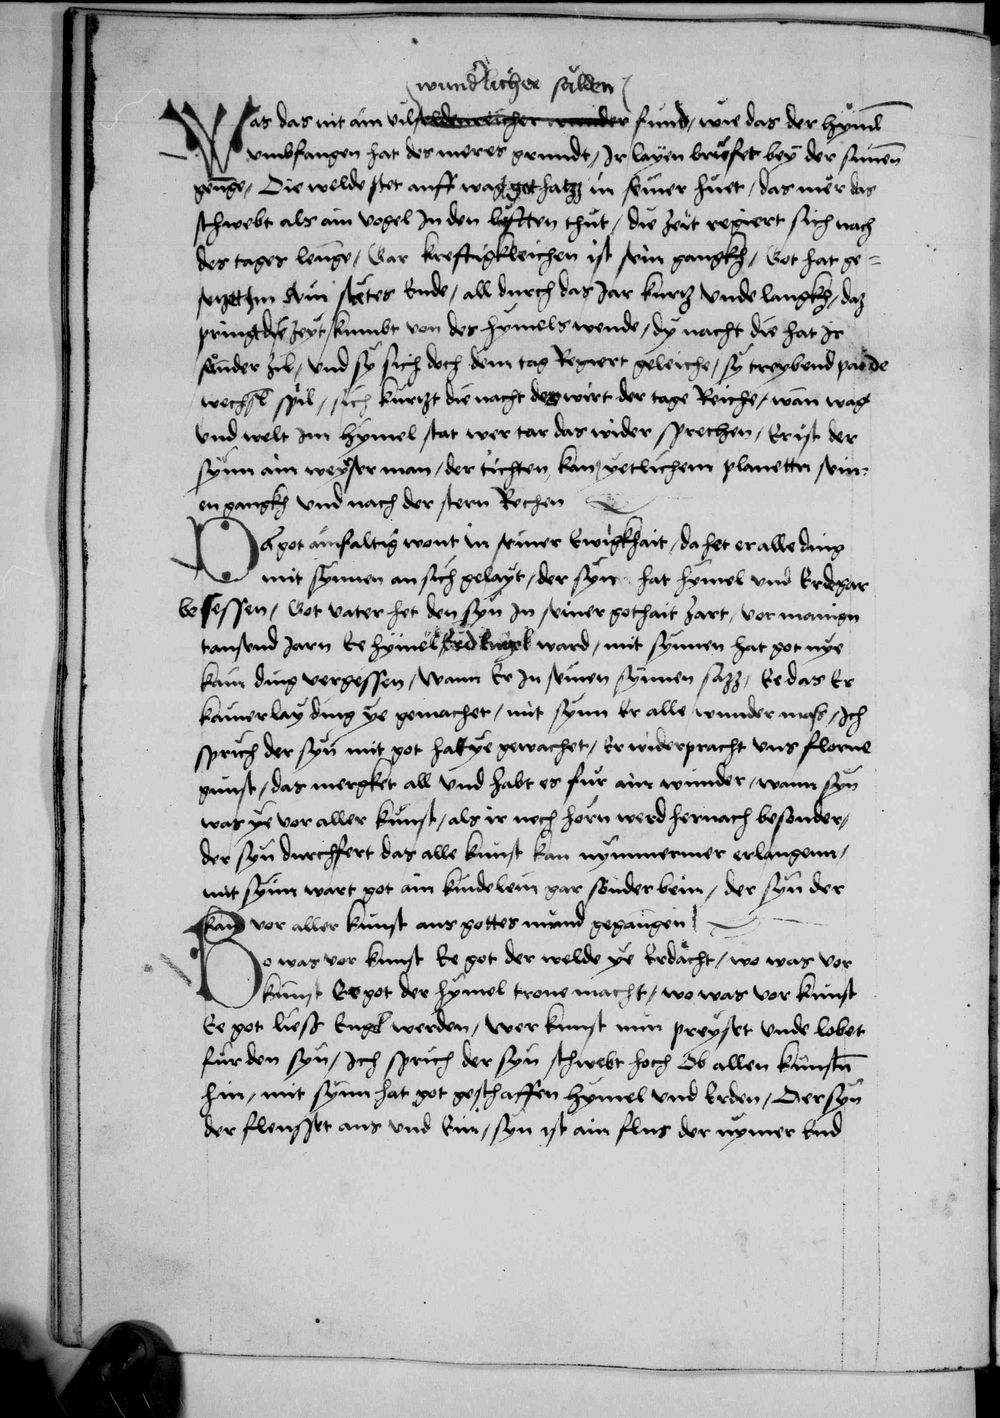 wund'licher sälden
Was das nit ain vil seldenreicher wunder fund / wie das der hyml
vmbfangen hat des meres grundt / Ir layen brüefet bey der sünen
genge / Die welde stet auff wag get hatzz in seiner huet / das mer das
schwebt als ain vogel In den lüfften thut / die zeit regiert sich nach
des tages lenge / Gar kreftigkleichen ist sein gangkh / Got hat ge=
seczet Im ein stetes Ende / all durch das Jar kurtz vnde langkh / daz
pringt die zeyt / kumbt von des hymels wende / dy nacht die hat Ir
sunder zil / vnd sy sich doch dem tag Regiert geleiche / sy treybend paide
wechsl spil / sich kürtzt die nacht des wirt der tage Reiche / wan wag
vnd welt Im hymel stat wer tar das wider sprechen / Er ist der
synn ain weyser man / der tichten kan / yetlichem planetten sein=
en gangkh vnd nach der stern Rechen
Da got ainfaltig wont in seiner Ewigkhait / da het er alle ding
mit synnen an sich gelayt / der syn hat hymel vnd Erde gar
besessen / Got vater het den syn In seiner gothait zart / vor manign
tausend Jarn Ee hymel Erd Engel ward / mit synnen hat got nye
kain ding vergessen / Wann Er In seinen synnen sazz / Ee das Er
kainerlay ding ye gemachet / mit synn Er alle wunder mass / Ich
sprich der syn mit got hat ye gewachet / Er widerpracht vns florne
gunst / das mergket all vnd habt es für ain wunder / wann syn
was ye vor aller kunst / als ir noch hörn werd hernach besonder /
der syn durchfert das alle kunst kan nymmermer erlangenn /
mit synn wart got ain kindelein gar sonder bein / der syn der
kan vor aller kunst aus gottes mund gegangen
Wo was vor kunst Ee got der welde ye Erdächt / wo was vor
kunst Ee got der hymel trone macht / wo was vor kunst
Ee got liess Engl werden / wer kunst nun preyset vnde lobet
für den syn / Ich sprich der syn schwebt hoch Ob allen kunstn
hin / mit synn hat got geschaffen hymel vnd Erden / Der syn
der fleusset aus vnd Ein / syn ist ain flus der nymer End